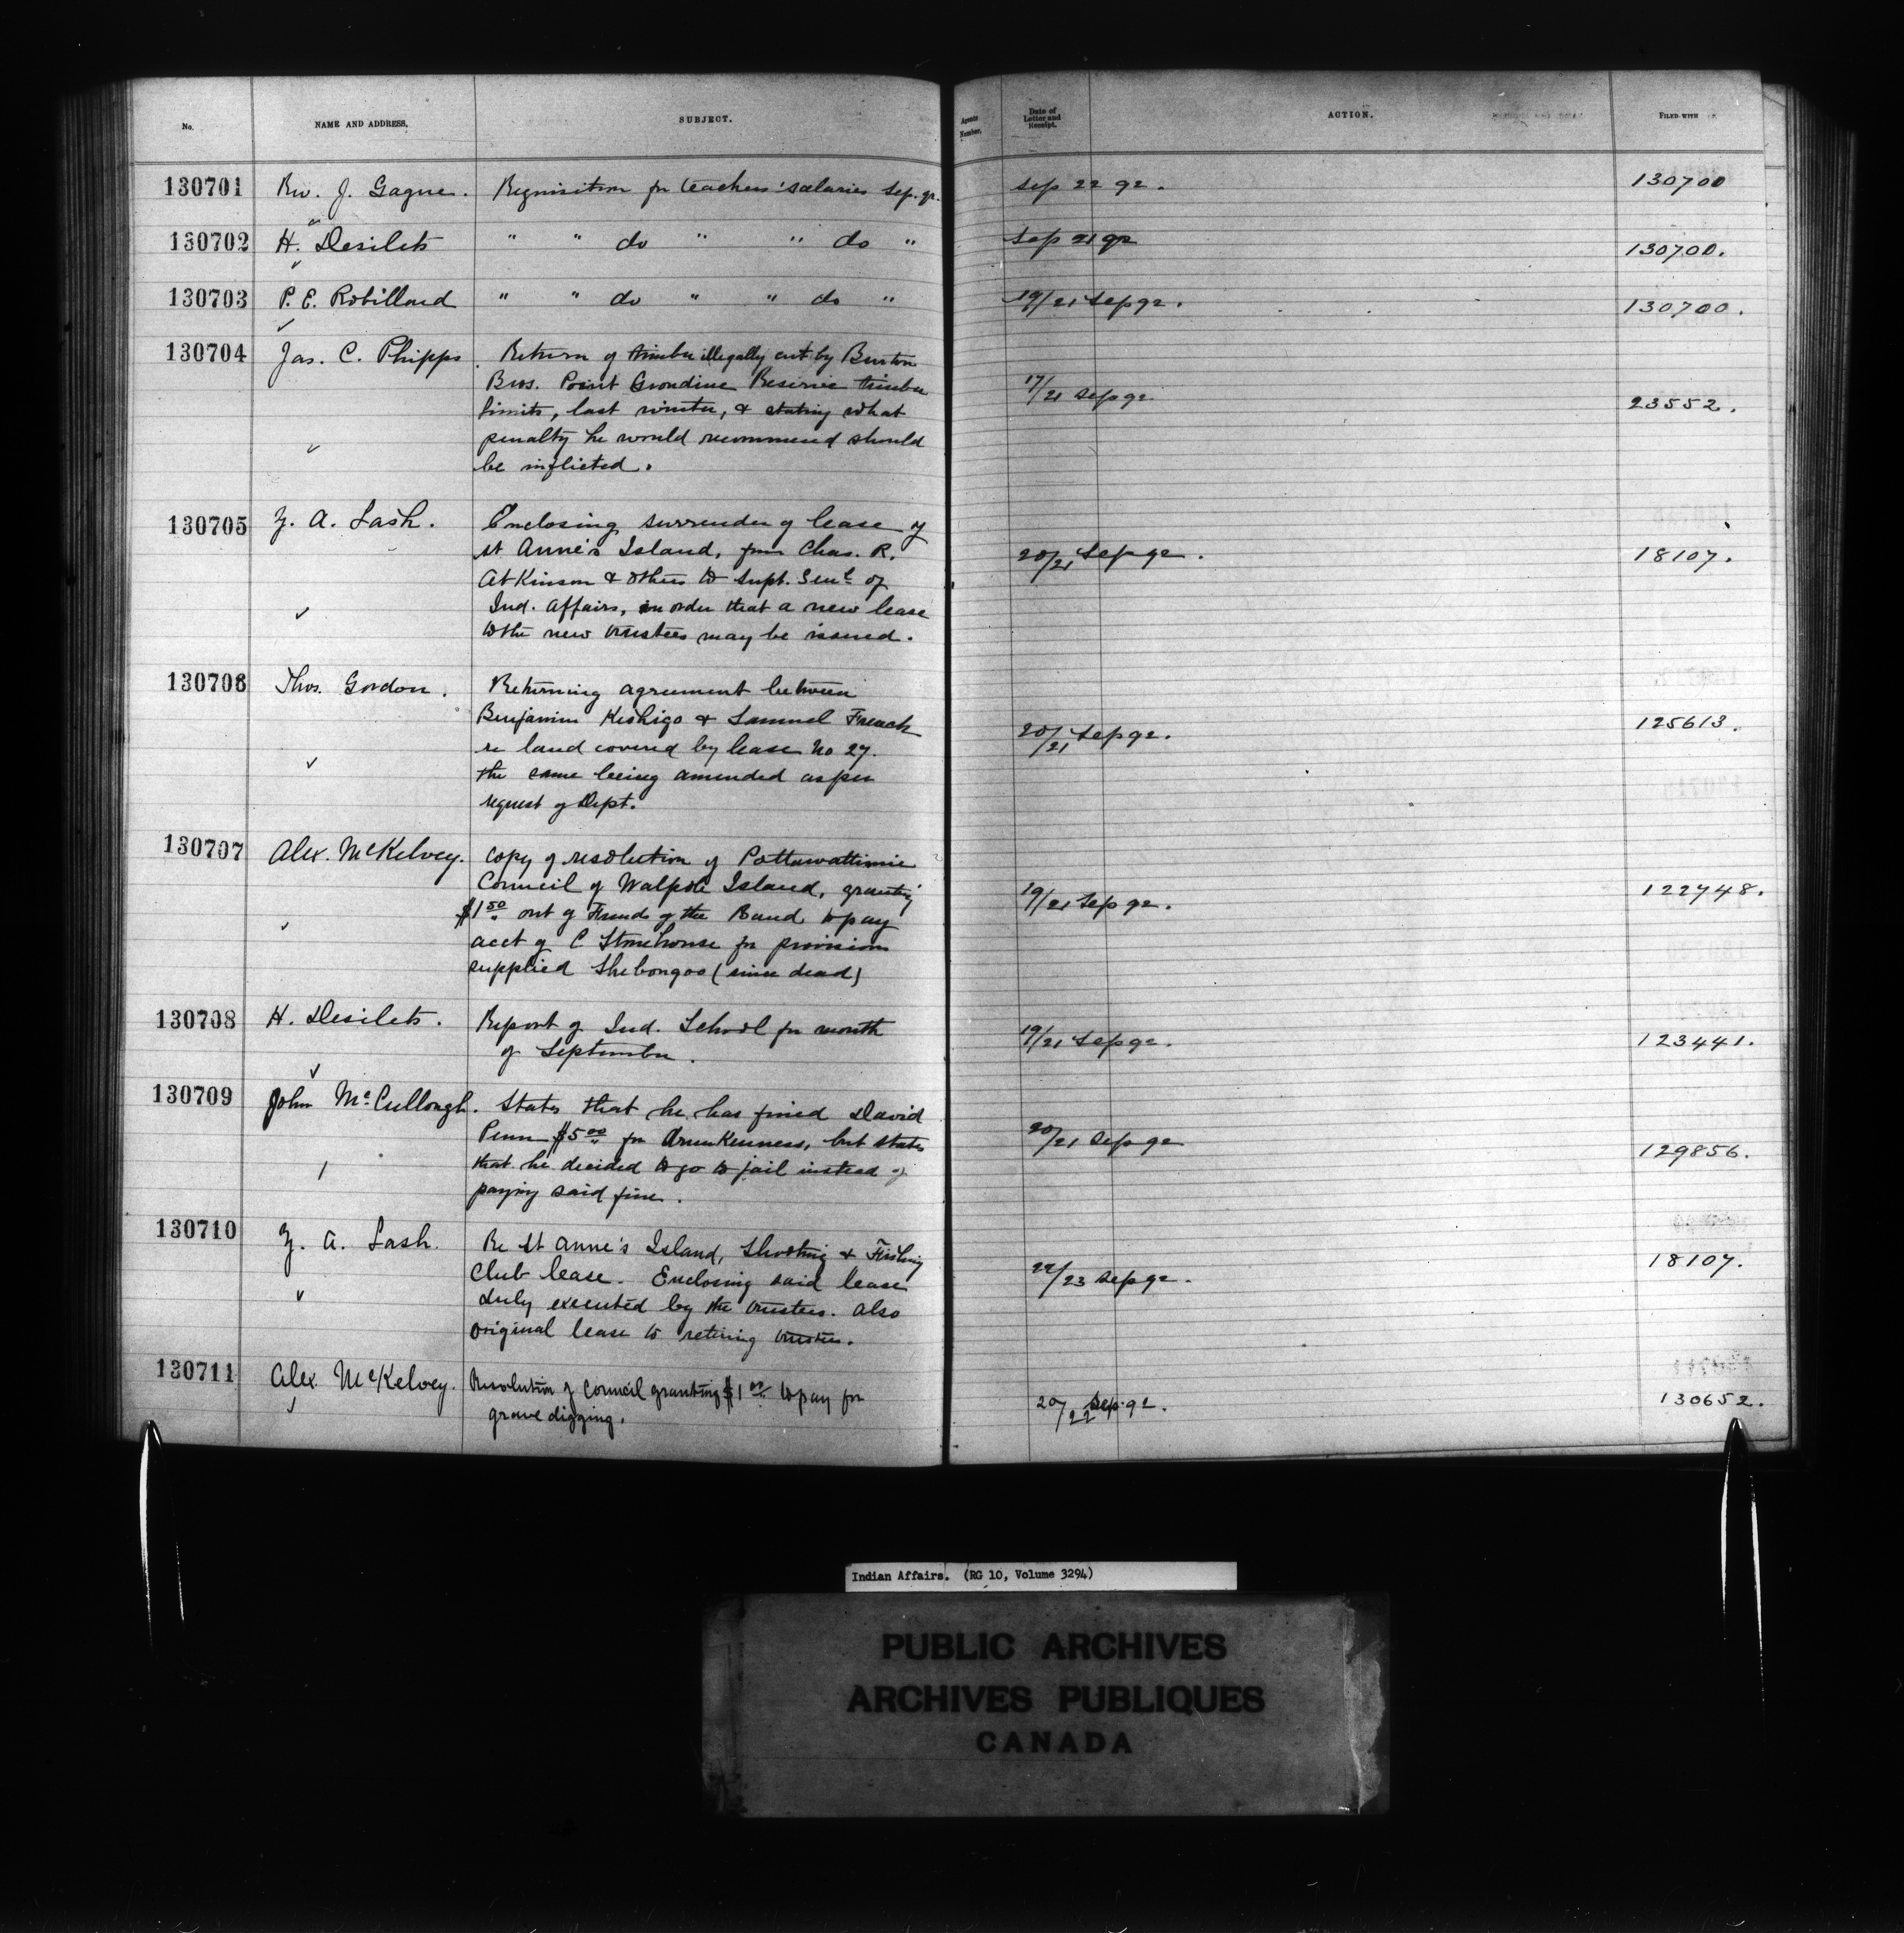 No. NAME AND ADDRESS. SUBJECT. Agents Number. Date of Letter and Receipt. ACTION. FILED WITH
130701 Rev. J. Gagne. Requisition for teachers' salaries Sep. qr. Sep 22 92. 130700
130702 H. Desilets " " do " " do " Sep 21 92 130700.
130703 P. E. Robillard " " do " " do " 19/21 Sep 92. 130700.
130704 Jas. C. Phipps. Return of timber illegally cut by Burton
Bros. Point Grondine Reserve timber
limits, last winter, & stating what
penalty he would recommend should
be inflicted.
17/21 Sep 92 23552.
130705 Z. A. Lash. Enclosing surrender of lease of
St Anne's Island, from Chas. R.
Atkinson & others to Supt. Genl of
Ind. Affairs, in order that a new lease
to the new trustees may be issued.
20/21 Sep 92. 18107.
130706 Thos. Gordon. Returning agreement between
Benjamin Keshigo & Samuel French
re land covered by lease No 27.
the same being amended as per
request of Dept.
20/21 Sep 92. 125613.
130707 Alex. McKelvey. Copy of resolution of Pottawattimie
Council of Walpole Island, granting
$1.50 out of Funds of the Band to pay
acct of C Stonehouse for provisions
supplied Shebongoo (since dead)
19/21 Sep 92. 122748.
130708 H. Desilets. Report of Ind. School for month
of September.
19/21 Sep 92. 123441.
130709 John McCullough. States that he has fined David
Penn $5.00 for drunkenness, but states
that he decided to go to jail instead of
paying said fine.
20/21 Sep 92 129856.
130710 Z. A. Lash. Re St Anne's Island, Shooting & Fishing
Club lease. Enclosing said lease
duly executed by the trustees. Also
original lease to retiring trustees.
22/23 Sep 92. 18107.
130711 Alex. McKelvey. Resolution of Council granting $1.00 to pay for
grave digging.
20/22 Sep. 92. 130652.
Indian Affairs. (RG 10, Volume 3294)
PUBLIC ARCHIVES
ARCHIVES PUBLIQUES
CANADA